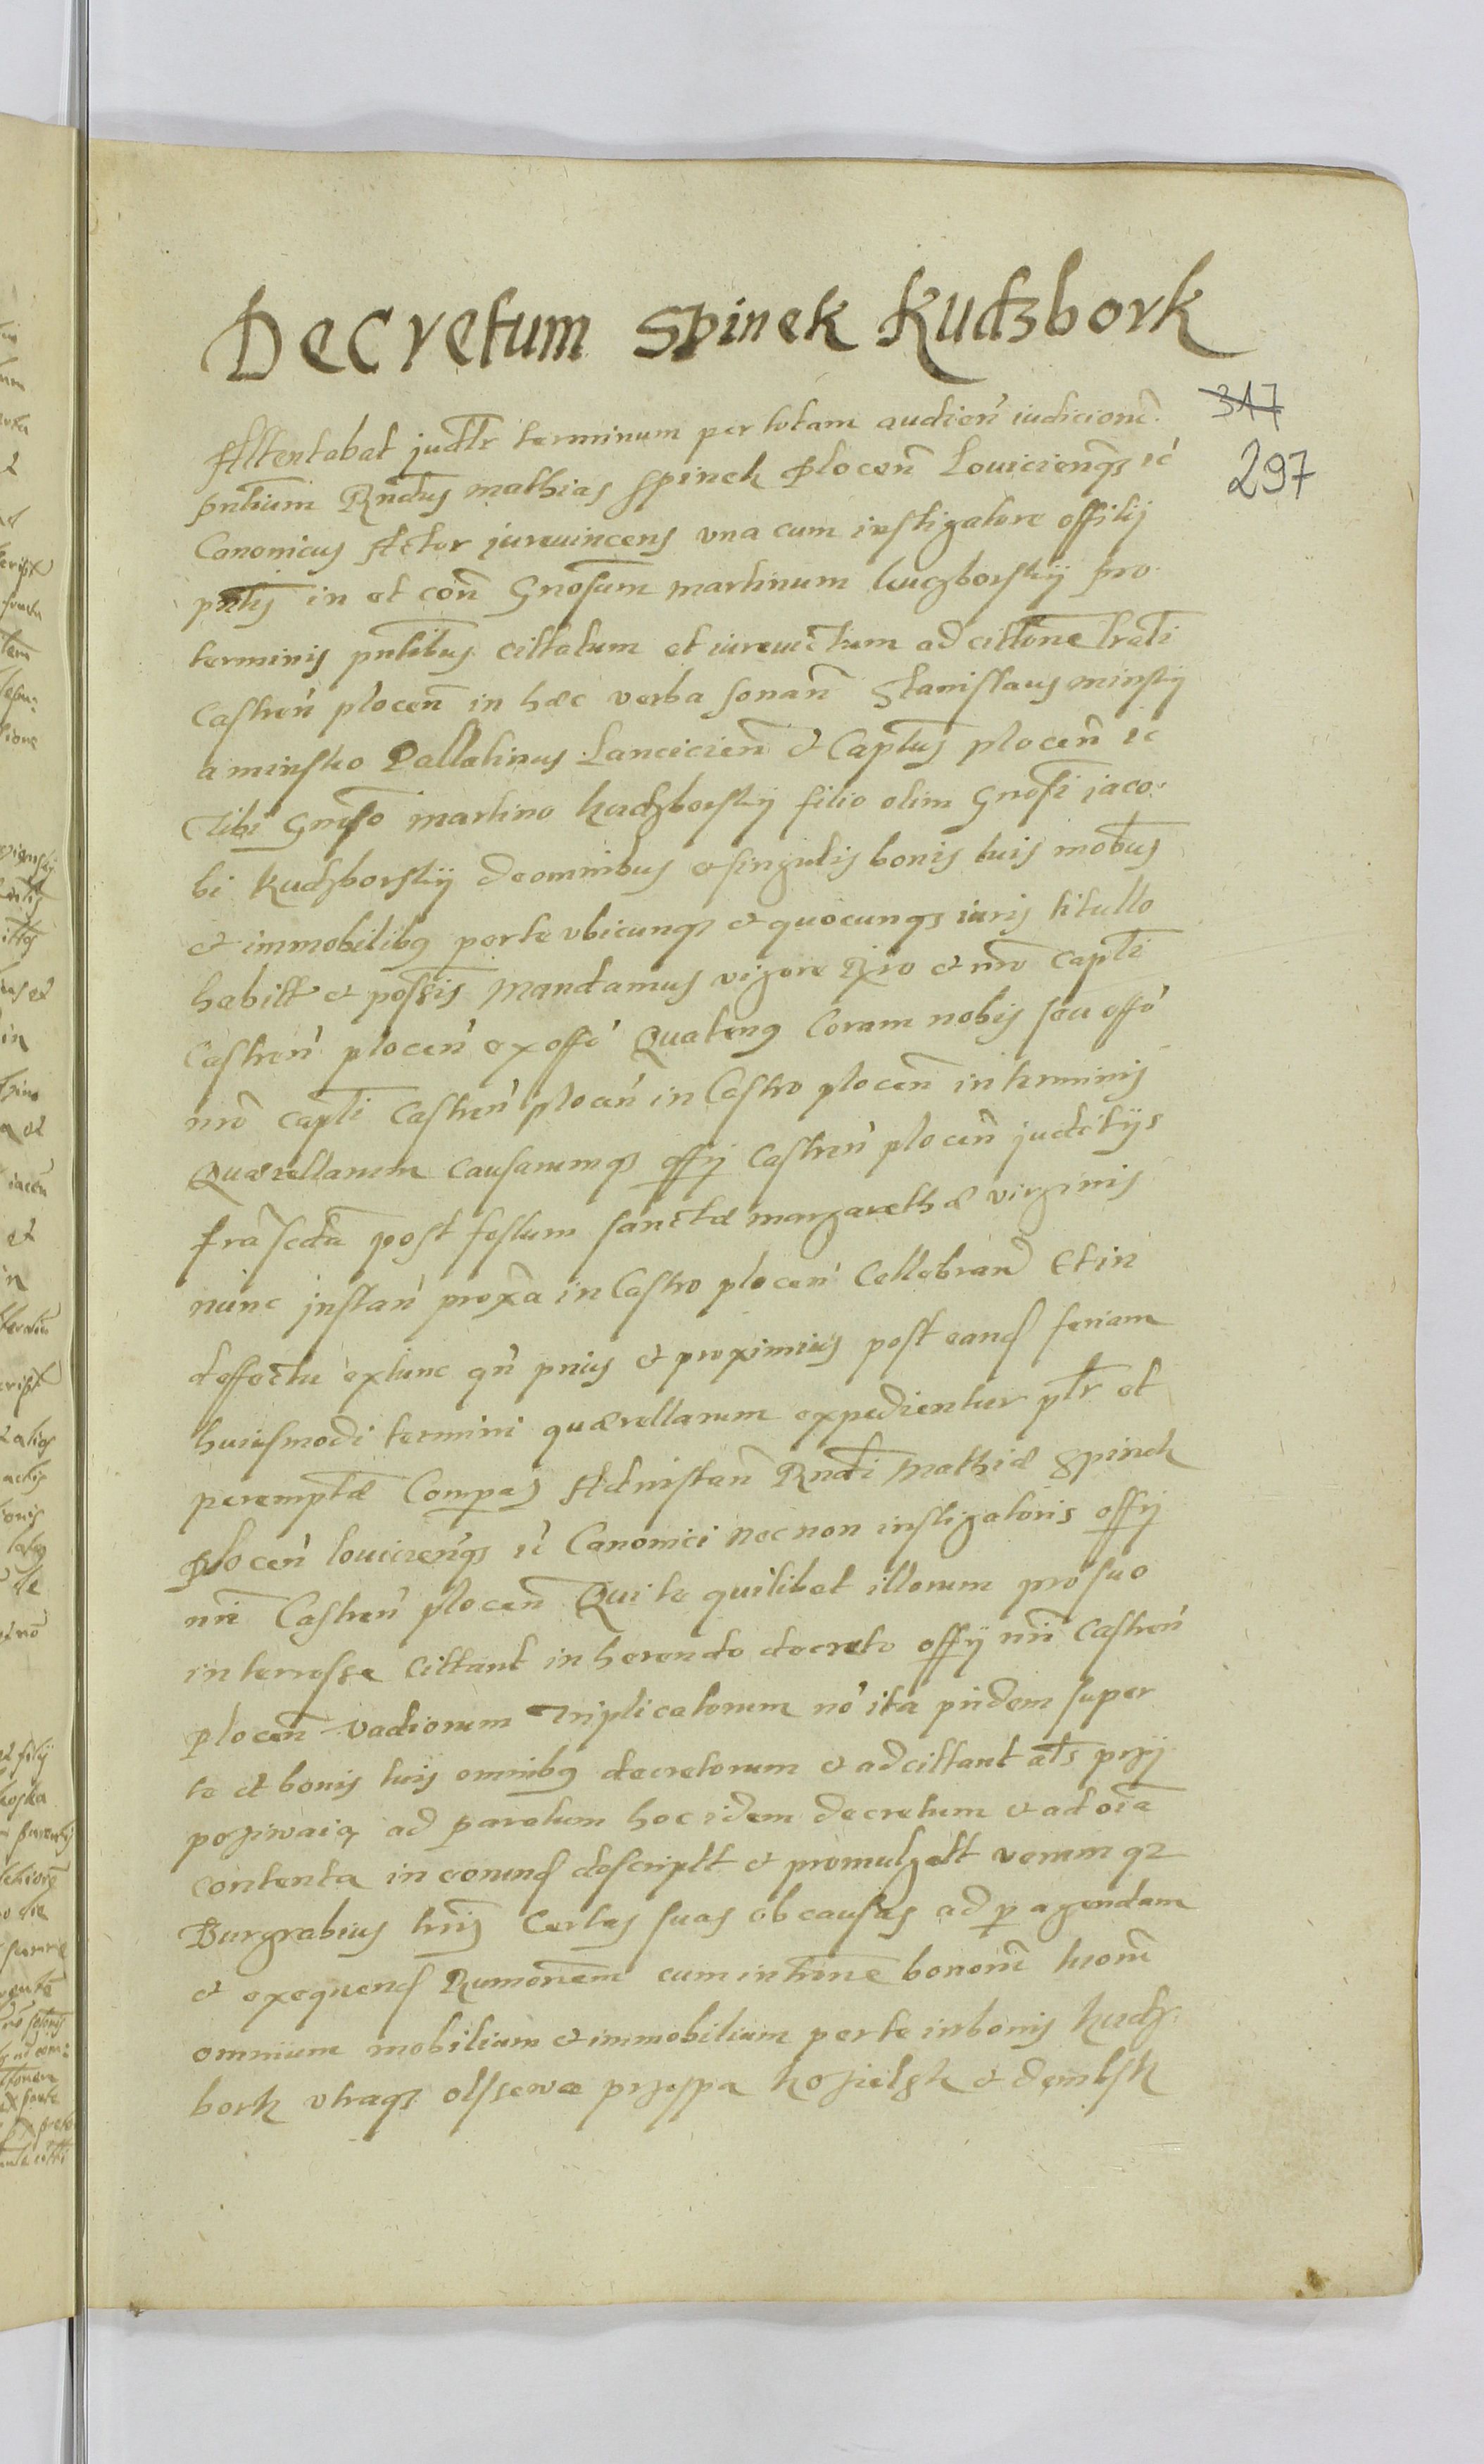 Decretum Spinek Kudzbork
317
297
Attentabat judlr terminum per totam audien iudiciorum
pntium Rndus mathias Spinek Plocen Loviciensqs ic
Canonicus Actor jurevincens una cum instigatore offitij
pntis in et con Gnosum martinum kuczborskij pro
terminis pntibus cittatum et iurevictum ad cittone lrali
Castren plocen in hæc verba sonan Stanislaus minskij
a minsko Pallatinus Lancicien & Captus plocen ic
Tibi Gnoso martino kudzborskij filio olim Gnosi jaco
bi Kudzborskij de omnibus & singulis bonis tuis mobus
& immobilibus per te ubicunqs & quocunqs iuris titullo
habitt & possis Mandamus vigore Rio & nro capli
Castren plocen ex offo Quatenus Coram nobis seu offo
nro capli Castren plocen in Castro plocen in terminis
Quærellarum causarumqs offij Castren plocen juditijs
fra scda post festum sanctæ margarethæ virginis
nunc instan proxa in Castro plocen Cellebrand Et in
deffectu extunc qn prius & proximius post eand feriam
huiusmodi termini quærellarum expedientur plr et
peremptæ Compas Ad instan Rndi Mathiæ Spinek
Plocen loviciensqs ic Canonici necnon instigatoris offij
nri Castren plocen Qui te quilibet illorum pro suo
interresse Cittant in herendo decreto offij nri Castren
Plocen vadiorum Triplicatorum no ita pridem super
te et bonis tuis omnibus decretorum & adcittant als przij
poziwaią ad paratum hoc idem decretum & ad oia
contenta in eorund descriptt & promulgatt verum qz
Burgrabius tris Certas suas ob causas ad peragendam
& exequend Rumonem cum introne bonorum tuorum
omnium mobilium & immobilium per te in bonis kudz
bork utraqs olssewæ przospa kozielsk & dęmbsk